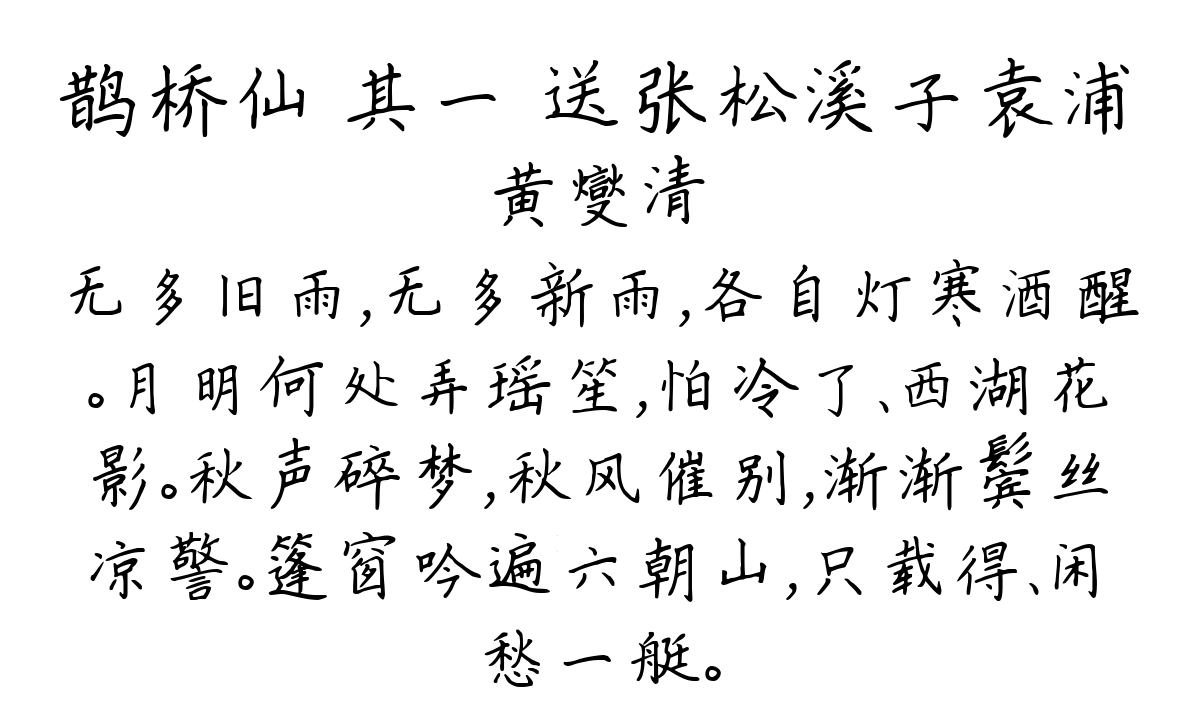 鹊桥仙 其一 送张松溪子袁浦
黄燮清
无多旧雨,无多新雨,各自灯寒酒醒
。月明何处弄瑶笙,怕冷了、西湖花
影。秋声碎梦,秋风催别,渐渐鬓丝
凉警。篷窗吟遍六朝山,只载得、闲
愁一艇。